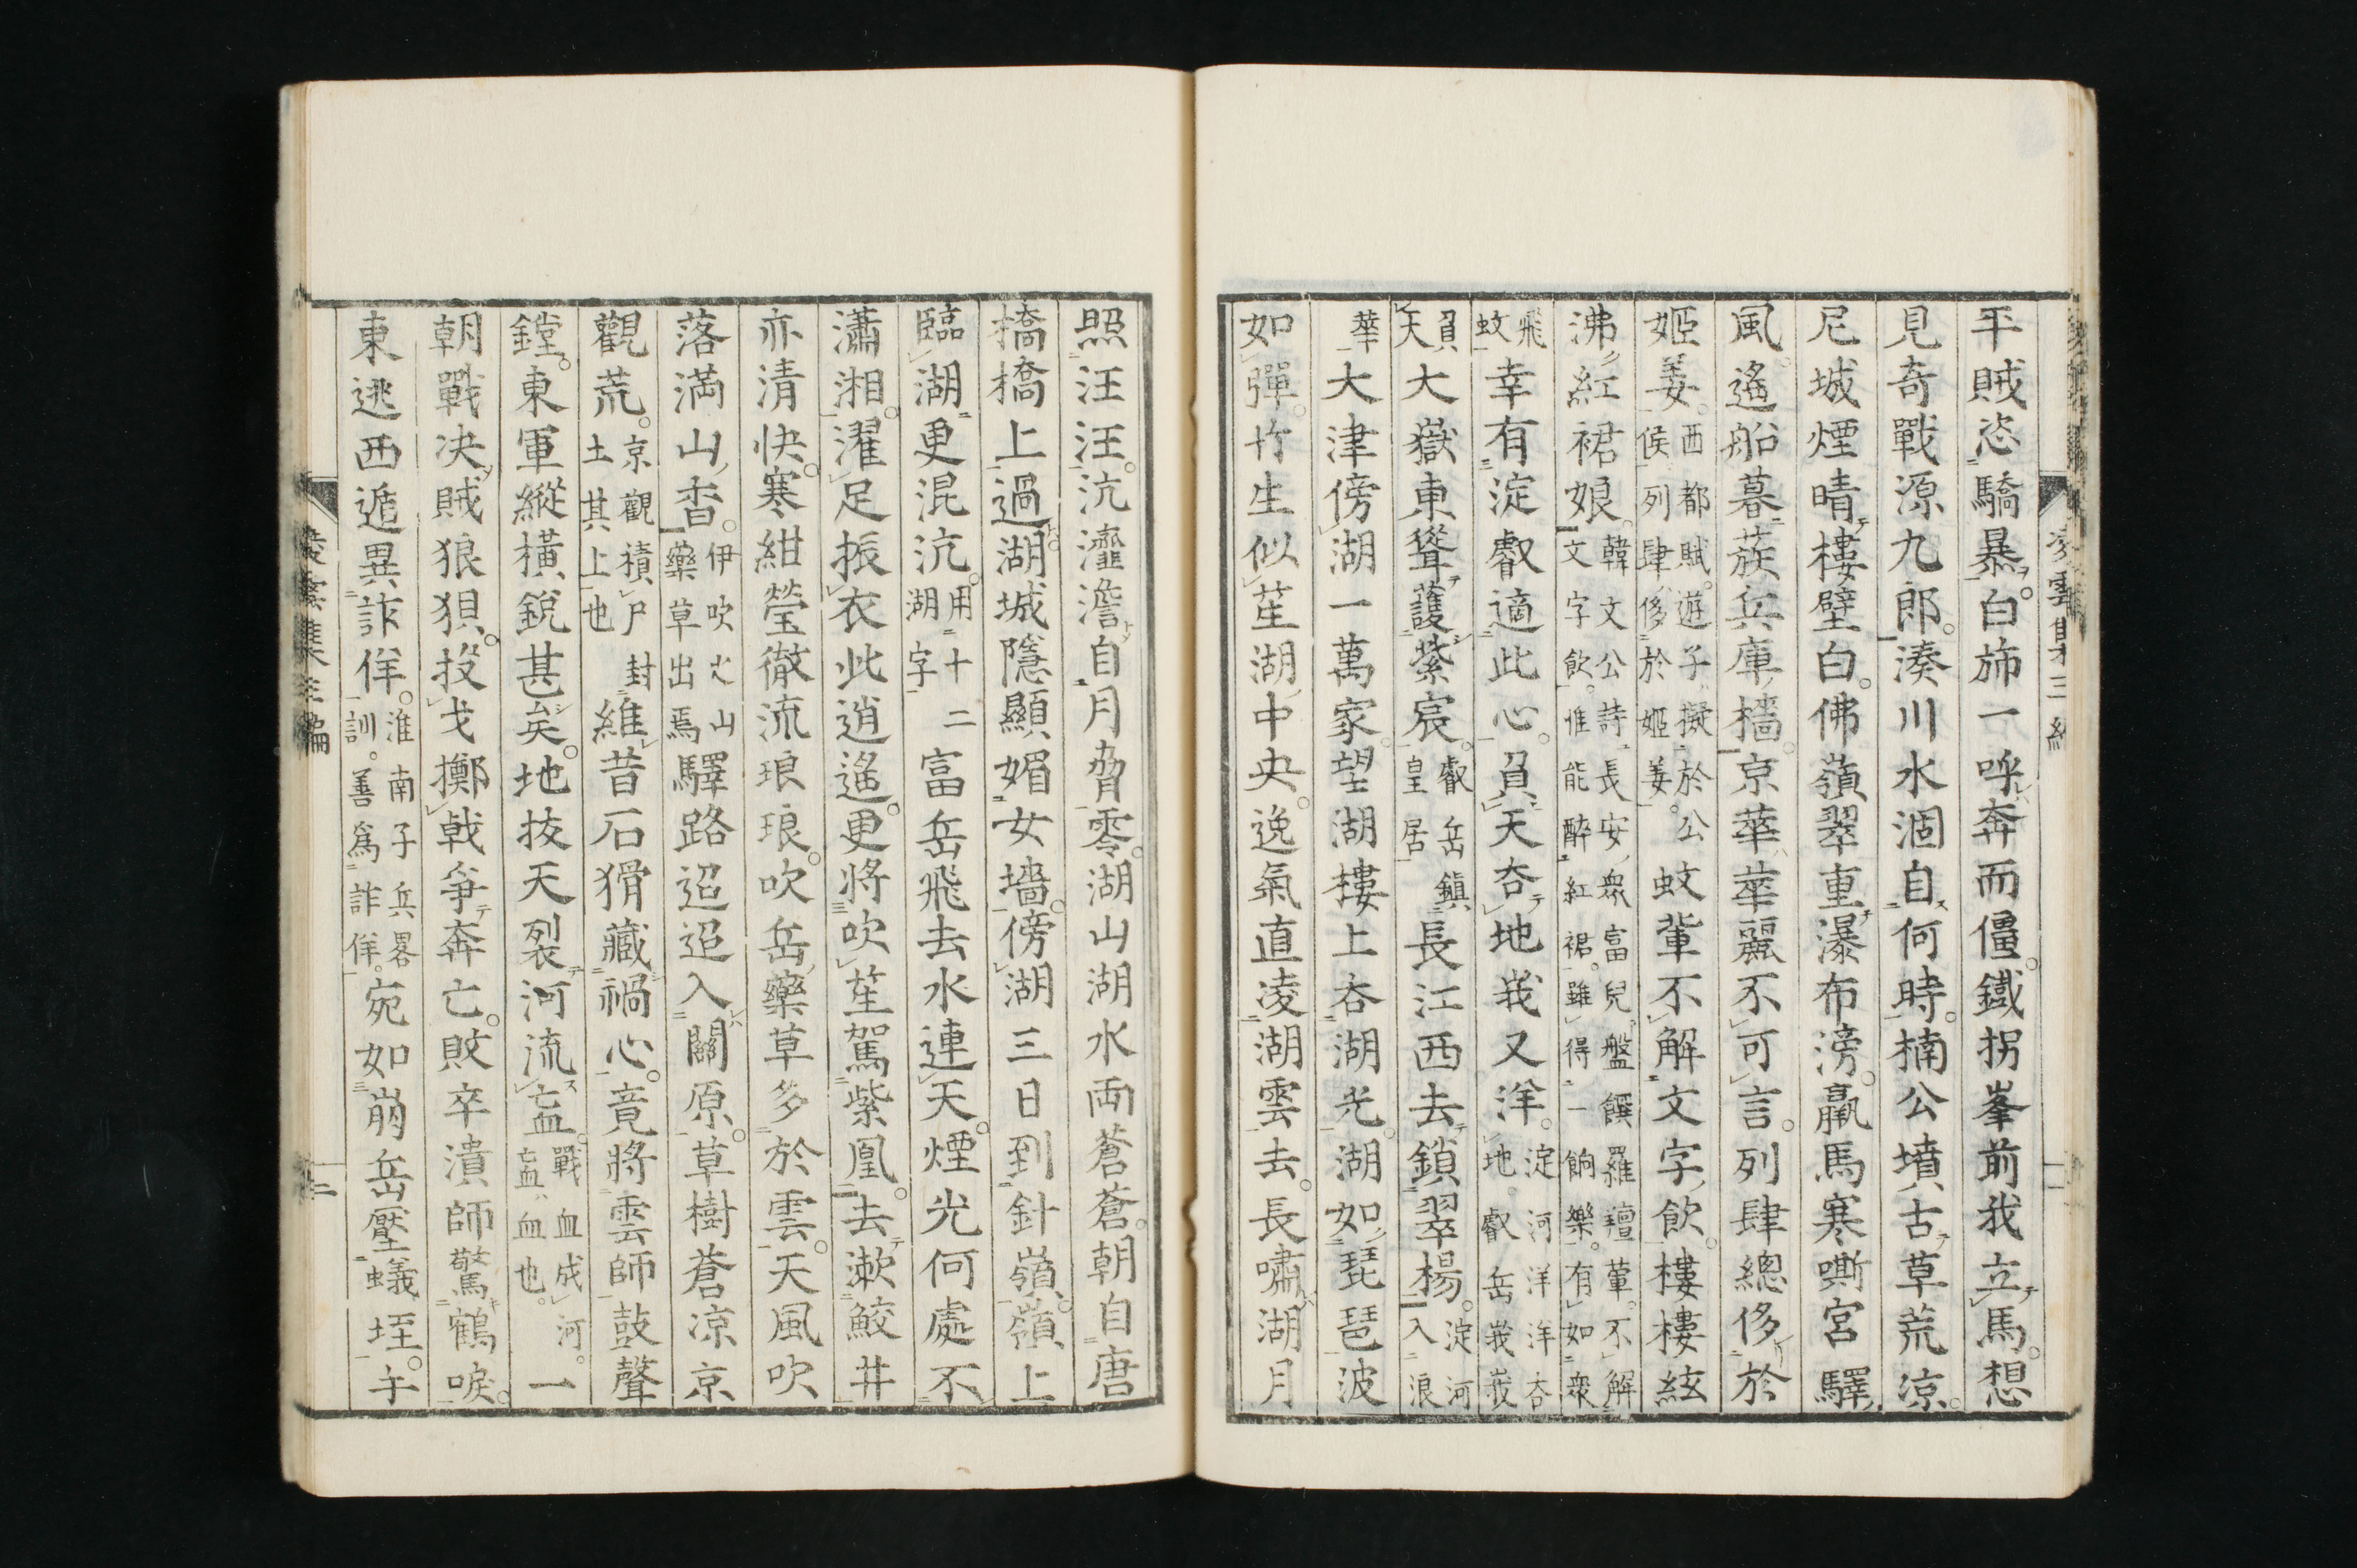 平賊恣驕暴白斾一呼奔而僵鐵拐峯前我立馬想
見奇戰源九郎湊川水涸自何時楠公墳古草荒涼
尼城煙晴樓壁白佛嶺翠重瀑布滂羸馬寒嘶宮驛
風遙船暮蔟兵庫檣京華華麗不可言列肆總侈於
姬姜西都賦遊子擬於公侯列肆侈於姬姜蚊軰不解文字飲樓樓絃
沸紅裙娘韓文公詩長安衆富兒盤饌羅羶葷不解文字飲惟能醉紅裙雖得一餉樂有如衆
飛蚊幸有淀叡適此心負天呑地峩又洋淀河洋洋呑地叡岳峩峩
負天大嶽東聳護紫宸叡岳鎮皇居長江西去鎖翠楊淀河入浪
華大津傍湖一萬家望湖樓上呑湖光湖如琵琶波
如彈竹生似茞湖中央逸氣直凌湖雲去長嘯湖月
照汪汪沆瀣澹自月脅零湖山湖水両蒼蒼朝自唐
橋橋上過湖城隱顯媚女墻傍湖三日到針嶺嶺上
臨湖更混沆用十二湖字富岳飛去水連天煙光何處不
瀟湘濯足振衣此逍遙更將吹笙駕紫凰去漱鮫井
亦清快寒紺瑩徹流琅琅吹岳藥草多於雲天風吹
落満山香伊吹火山藥草出焉驛路迢迢入關原草樹蒼凉京
觀荒京觀積尸封土其上也維昔石猾藏禍心竟將雲師鼓聲
鏜東軍縱橫銳甚矣地抜天裂河流衁戰血成河衁血也一
朝戰決賊狼狽投戈擲戟爭奔亡敗卒潰師驚鶴唳
東逃西遁異詐佯淮南子兵畧訓善爲詐佯宛如崩岳壓蟻垤午